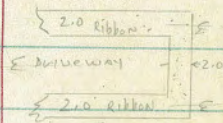 2.0 Ribbon
E DRIVEWAY
2.0
2.0 RIBBON